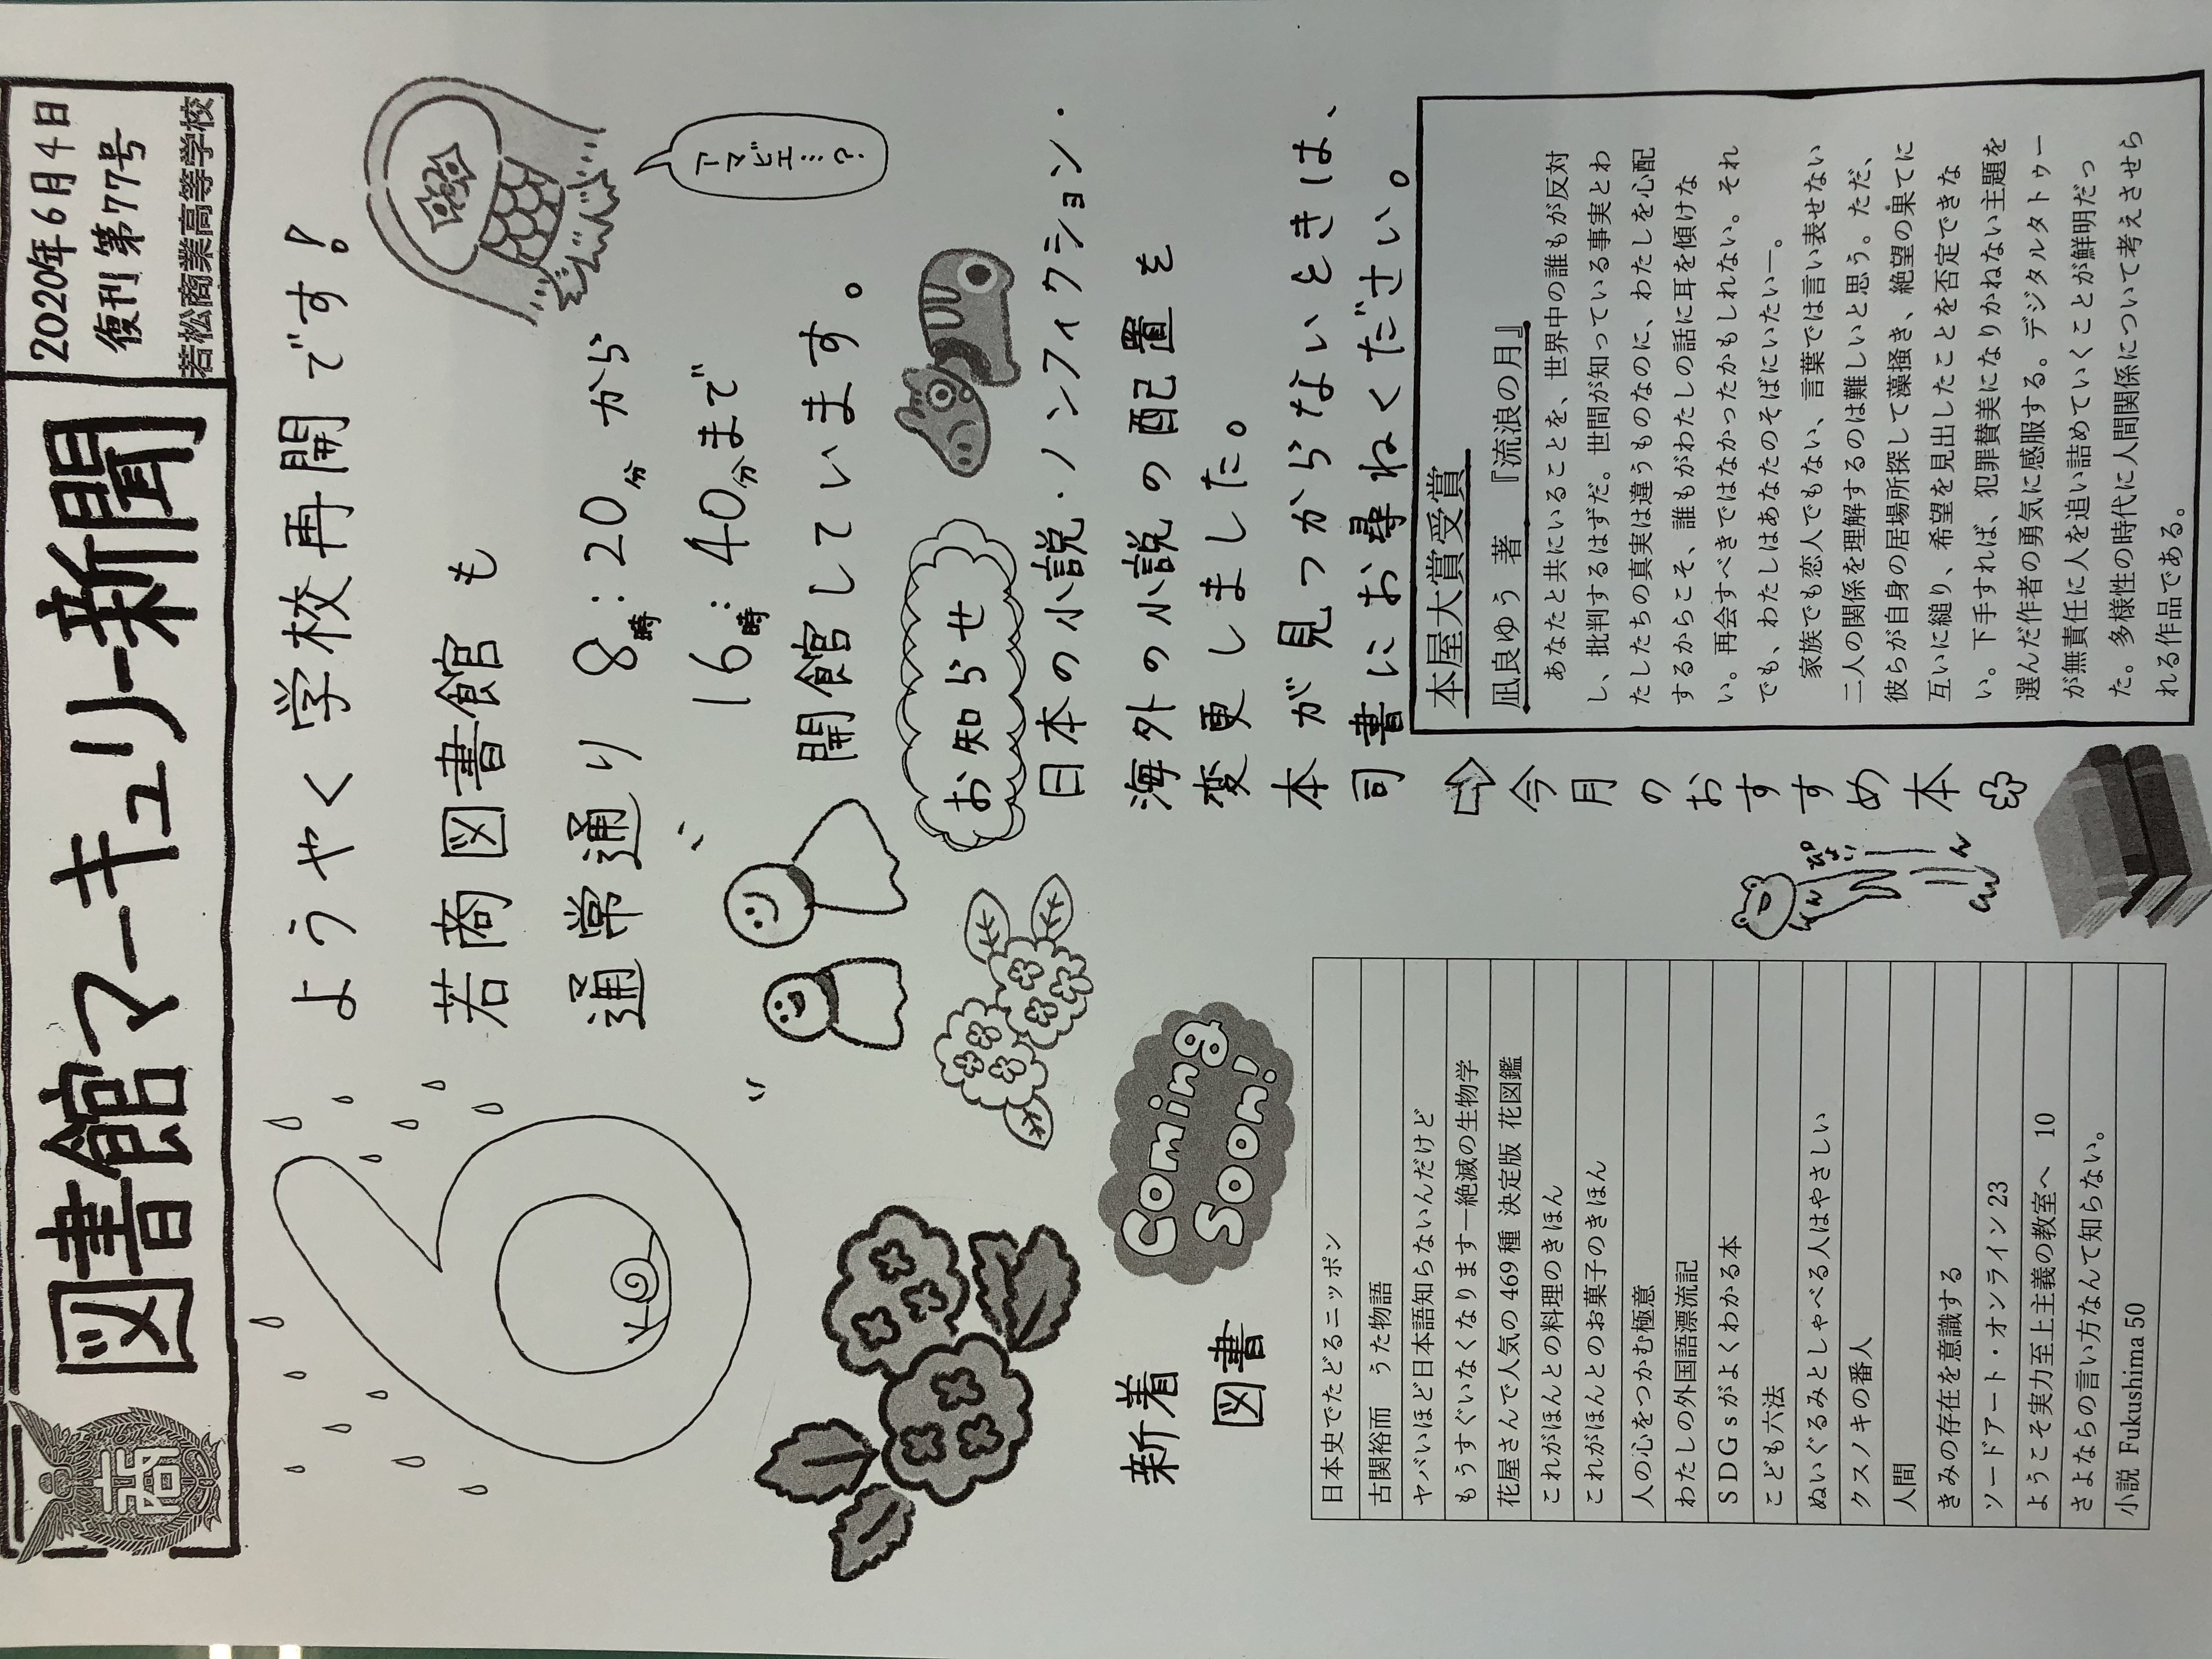 図書館マーキュリー新聞
2020年6月4日
復刊第77号
若松商業高等学校
商
ようやく学校再開です!
若商図書館も
通常通り 8時:20分から
16時:40分まで
開館しています。
アマビエ…?
お知らせ
日本の小説・ノンフィクション・
海外の小説の配置を
変更しました。
本が見つからないときは、
司書にお尋ねください。
⇨今月のおすすめ本
ぴょい
本屋大賞受賞
凪良ゆう 著 『流浪の月』
あなたと共にいることを、世界中の誰もが反対
し、批判するはずだ。世間が知っている事実とわ
たしたちの真実は違うものなのに、わたしを心配
するからこそ、誰もがわたしの話に耳を傾けな
い。再会すべきではなかったかもしれない。それ
でも、わたしはあなたのそばにいたい―。
家族でも恋人でもない、言葉では言い表せない
二人の関係を理解するのは難しいと思う。ただ、
彼らが自身の居場所探して藻掻き、絶望の果てに
互いに縋り、希望を見出したことを否定できな
い。下手すれば、犯罪賛美になりかねない主題を
選んだ作者の勇気に感服する。デジタルタトゥー
が無責任に人を追い詰めていくことが鮮明だっ
た。多様性の時代に人間関係について考えさせら
れる作品である。
新着
図書
Coming
Soon!
日本史でたどるニッポン
古関裕而 うた物語
ヤバいほど日本語知らないんだけど
もうすぐいなくなります―絶滅の生物学
花屋さんで人気の469種 決定版 花図鑑
これがほんとの料理のきほん
これがほんとのお菓子のきほん
人の心をつかむ極意
わたしの外国語漂流記
SDGsがよくわかる本
こども六法
ぬいぐるみとしゃべる人はやさしい
クスノキの番人
人間
きみの存在を意識する
ソードアート・オンライン23
ようこそ実力至上主義の教室へ 10
さよならの言い方なんて知らない。
小説 Fukushima 50